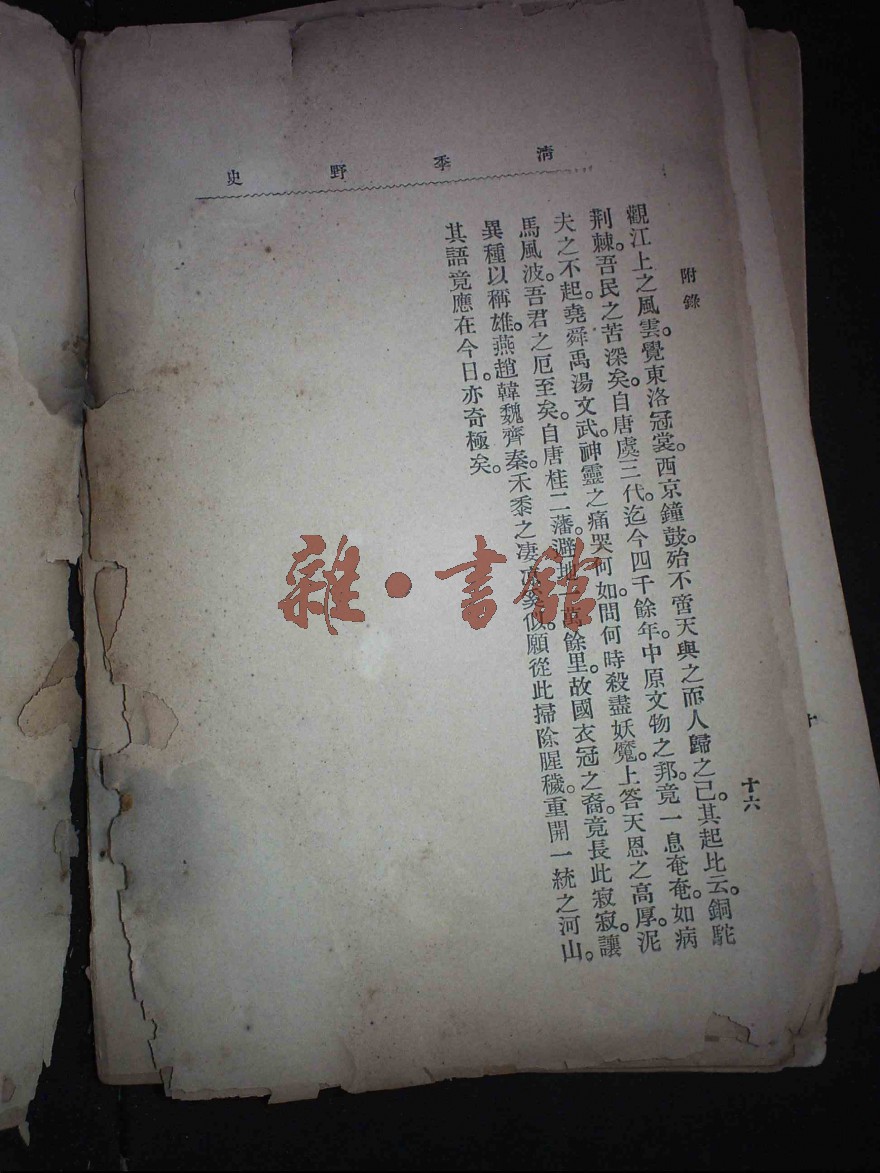 清季野史
附錄
十六
觀江上之風雲。覺東洛冠裳。西京鐘鼓。殆不啻天與之而人歸之已。其起比云。銅駝
荆棘。吾民之苦深矣。自唐虞三代。迄今四千餘年。中原文物之邦。竟一息奄奄。如病
夫之不起。堯舜禹湯文武。神靈之痛哭何如。問何時殺盡妖魔。上答天恩之高厚。泥
馬風波。吾君之厄至矣。自唐桂二藩。避地萬餘里。故國衣冠之裔。竟長此寂寂。讓
異種以稱雄。燕趙韓魏齊秦。禾黍之凄似。願從此掃除腥穢。重開一統之河山。
其語竟應在今日。亦奇極矣。
雜·書館